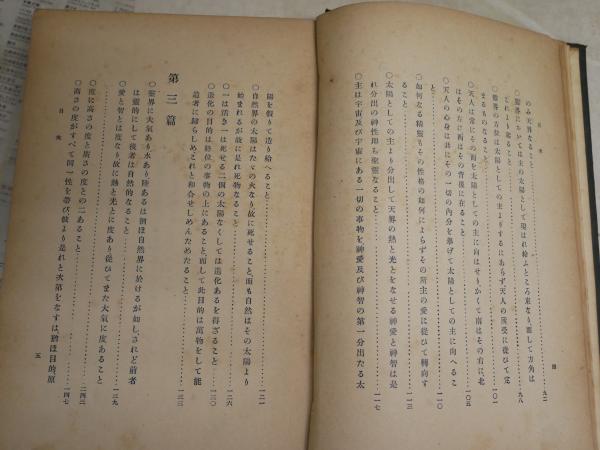 目次
のみ天界なること……九二
○靈界においては主の太陽として現はれ給ふところ東なり而して方角は
これより起ること……九八
○靈界の方位は太陽としての主よりするにあらず天人の所受に從ひて定
まるものなること……一〇一
○天人は常にその面を太陽としての主に向はせりかくて南はその右に、北
はその左に而して西はその背後に在ること……一〇五
○天人の心身は共にその一切の內分を擧げて太陽としての主に向へるこ
と……一一〇
○如何なる精靈もその性格の如何によらずその所主の愛に從ひて轉向す
ること……一一三
○太陽としての主より分出して天界の熱と光とをなせる神愛と神智は是
れ分出の神性即ち聖靈なること……一一七
○主は宇宙及び宇宙にある一切の事物を神愛及び神智の第一分出たる太
陽を假りて造り給へること……一二一
○自然界の太陽はたゞの火なり故に死せること、而も自然はその太陽より
始まれるが故に是れ死物なること……一二六
○一は活き一は死せる二個の太陽なくしては造化あるを得ざること……一三〇
○造化の目的は終位の事物の上にあること、而して此目的は萬物をして能
造者に歸らしめ、これと和合せしめんためたること……一三三
第三篇
○靈界に大氣あり水あり陸あるは猶ほ自然界に於けるが如し、されど前者
は靈的にして後者は自然的なること……一三九
○愛と智とは度なり、故に熱と光とに度あり從ひてまた大氣に度あること
○度に高さの度と廣さの度との二あること……一四二
○高さの度がすべて同一性を帶び、彼より是れと次第をなすは、猶ほ目的、原
一四七
目次
五